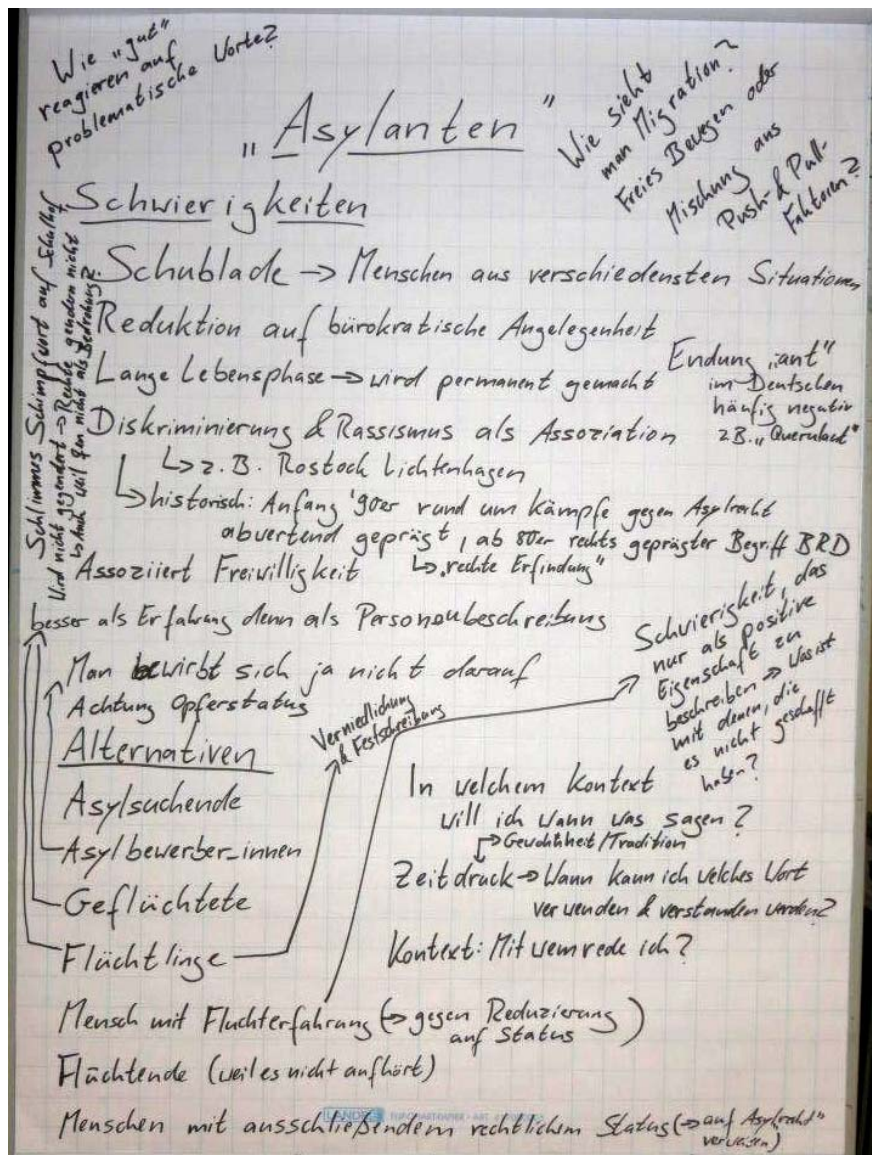 Wie „gut"
reagieren auf
problematische Worte?
„Asylanten"
Wie sieht
man Migration?
Freies Bewegen oder
Mischung aus
Push- & Pull-
Faktoren?
Schwierigkeiten
Schlimmes Schimpfwort auf Schulhof
Wird nicht gegendert → Rechte gendern nicht
↳ Auch weil Frauen nicht als Bedrohung?
Schublade → Menschen aus verschiedensten Situationen
Reduktion auf bürokratische Angelegenheit
Lange Lebensphase → wird permanent gemacht
Endung „ant"
im Deutschen
häufig negativ
z.B. „Querulant"
Diskriminierung & Rassismus als Assoziation
↳ z.B. Rostock Lichtenhagen
↳ historisch: Anfang '90er rund um Kämpfe gegen Asylrecht
abwertend geprägt, ab 80er rechts geprägter Begriff BRD
↳ „rechte Erfindung"
Assoziiert Freiwilligkeit
besser als Erfahrung denn als Personenbeschreibung
Man bewirbt sich ja nicht darauf
Achtung Opferstatus
Schwierigkeit, das
nur als positive
Eigenschaft zu
beschreiben → Was ist
mit denen, die
es nicht geschafft
haben?
Verniedlichung
& Festschreibung
Alternativen
Asylsuchende
Asylbewerber_innen
Geflüchtete
Flüchtlinge
In welchem Kontext
will ich wann was sagen?
↳ Gewohnheit/Tradition
Zeitdruck → Wann kann ich welches Wort
verwenden & verstanden werden?
Kontext: Mit wem rede ich?
Mensch mit Fluchterfahrung (→ gegen Reduzierung
auf Status)
Flüchtende (weil es nicht aufhört)
Menschen mit ausschließendem rechtlichem Status (→ auf „Asylrecht"
verweisen)